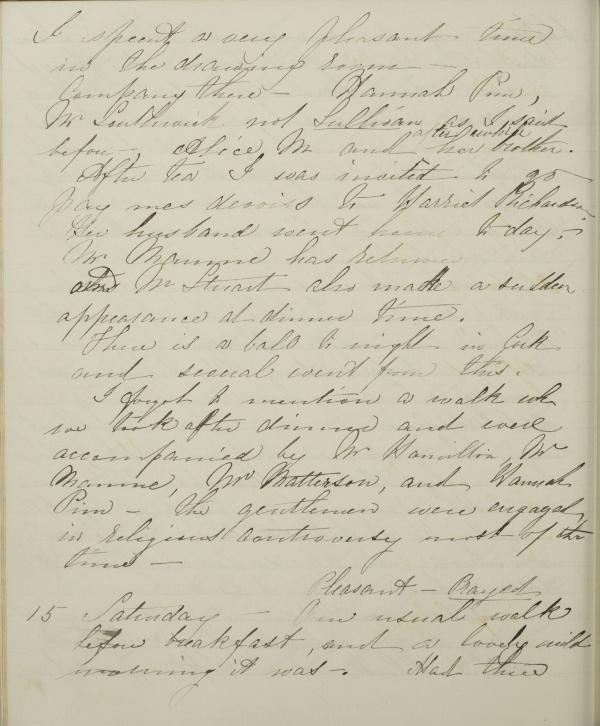 I spent a very pleasant time
in the drawing room —
Company there — Hannah Pim,
Mr Southwick not Sullivan as I said
before, Alice M and her brother.
after awhile
After tea I was invited to go
pay mes devoirs to Harriet Richardson
Her husband went home to day,
Mr Mamme has returned
and Mr Stuart also made a sudden
appearance at dinner time.
There is a ball to night in Cork
and several went from this.
I forgot to mention a walk wh
we took after dinner and were
accompanied by Mr Hamilton, Mr
Mamme, Mr Matterson, and Hannah
Pim — the gentlemen were engaged
in religious controversy most of the
time —
Pleasant —
15 Saturday — Our usual walk
before breakfast, and a lovely mild
morning it was —. Had three